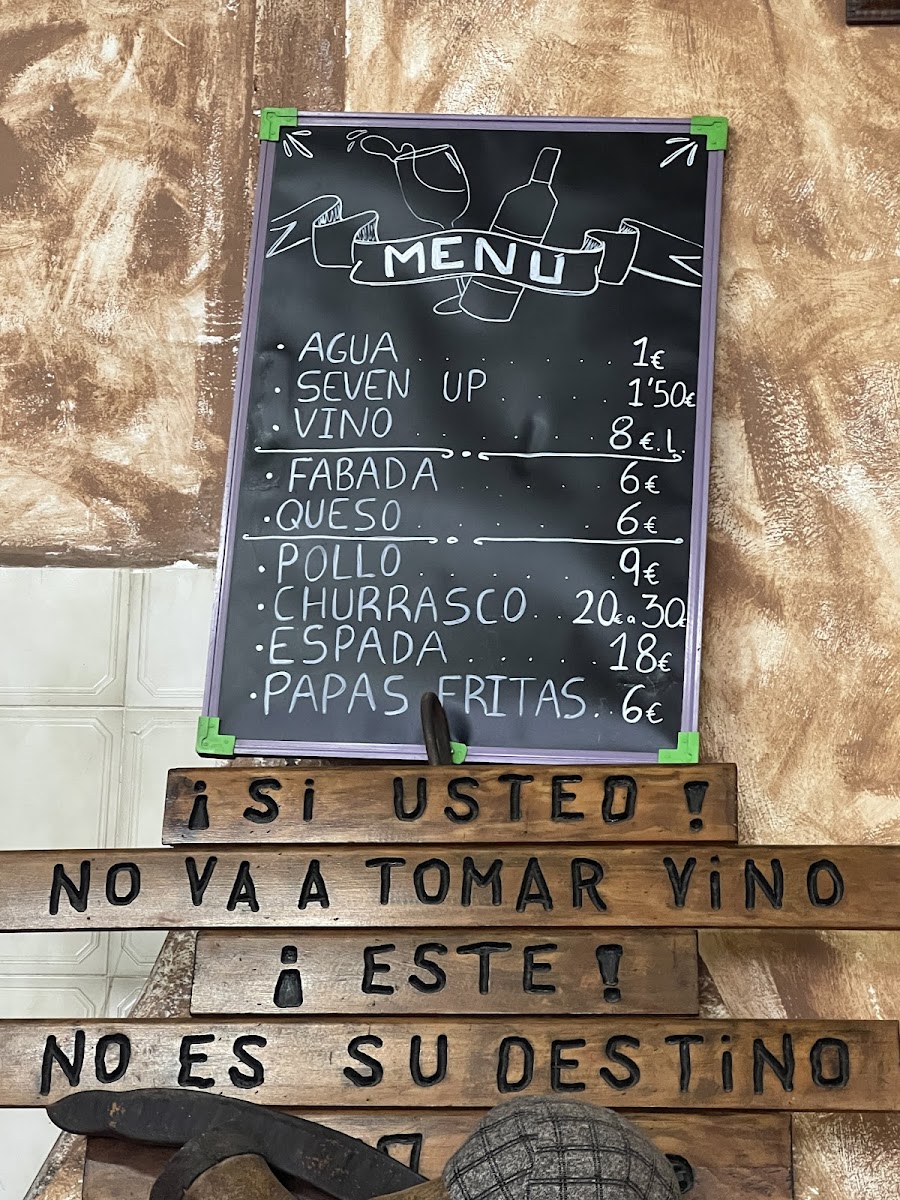 MENÚ
• AGUA . . . . . . . . 1€
• SEVEN UP . . . . . 1'50€
• VINO . . . . . . . . 8€.L.
• FABADA . . . . . . . 6€
• QUESO . . . . . . . . 6€
• POLLO . . . . . . . . 9€
• CHURRASCO . . 20€ a 30€
• ESPADA . . . . . . 18€
• PAPAS FRITAS . . 6€
¡Si USTED!
NO VA A TOMAR ViNO
¡ESTE!
NO ES SU DESTiNO